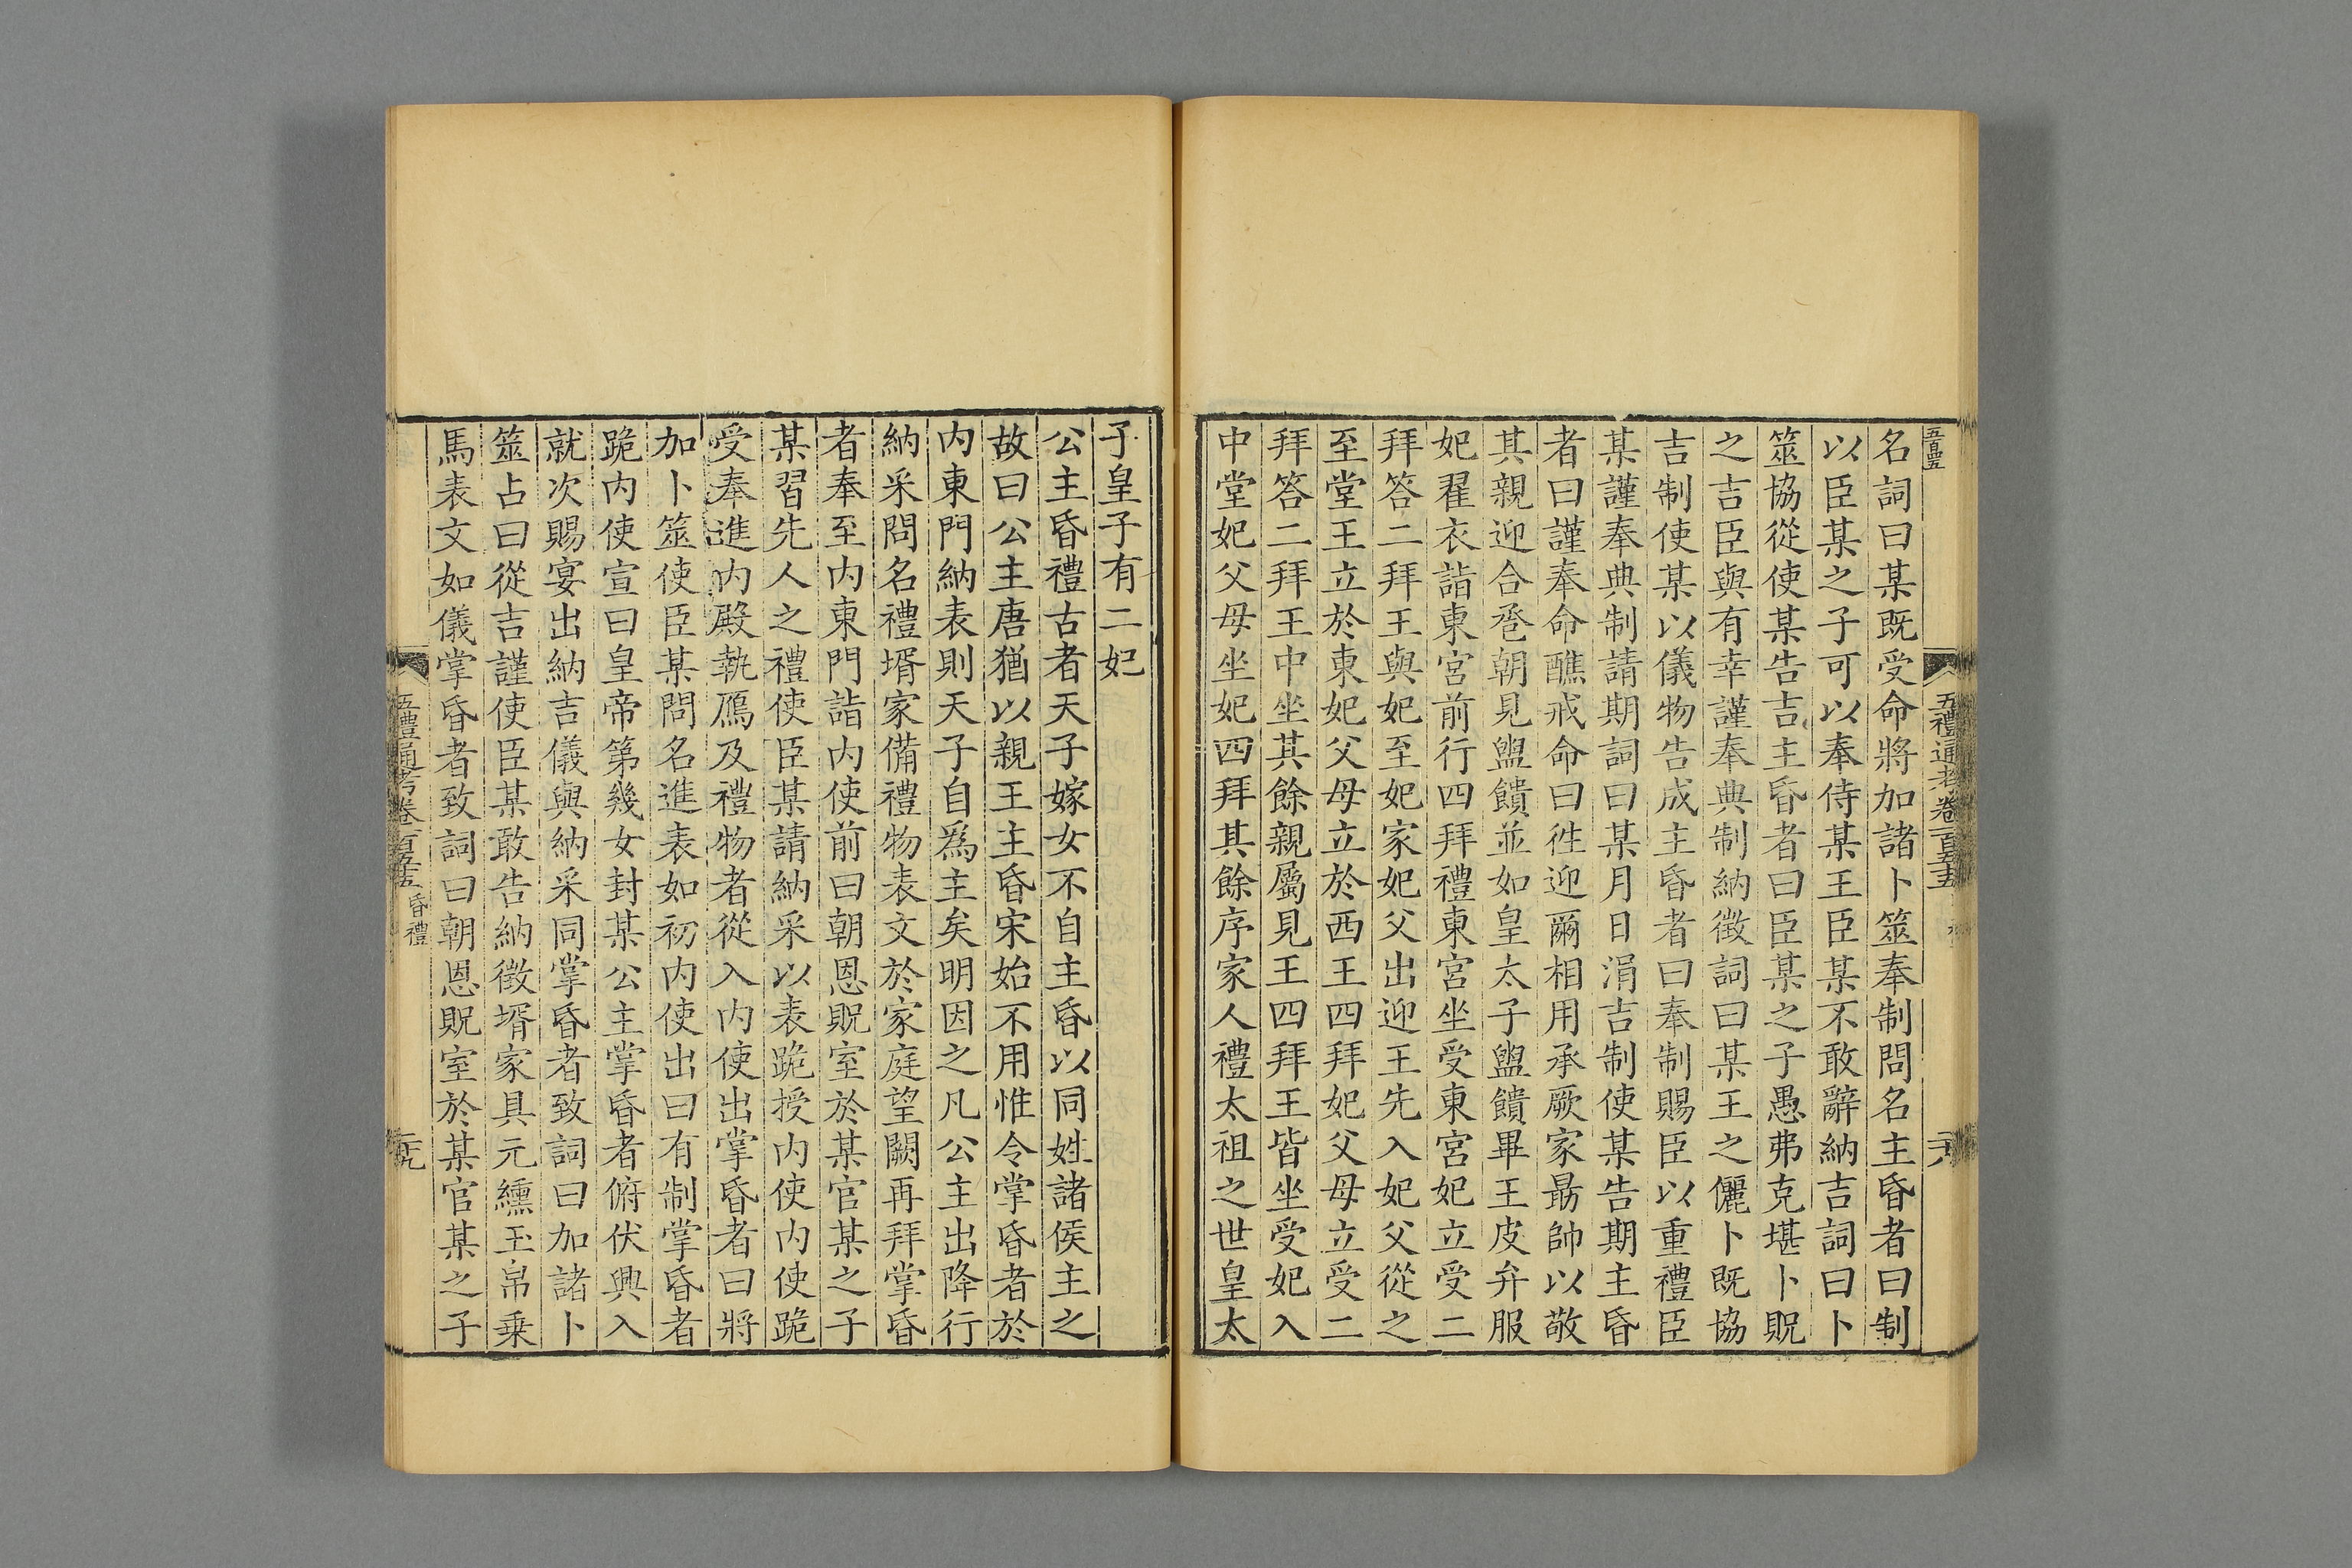 五禮通考卷一百五十五
名詞曰某既受命將加諸卜筮奉制問名主昏者曰制
以臣某之子可以奉侍某王臣某不敢辭納吉詞曰卜
筮協從使某告吉主昏者曰臣某之子愚弗克堪卜貺
之吉臣與有幸謹奉典制納徵詞曰某王之儷卜既協
吉制使某以儀物告成主昏者曰奉制賜臣以重禮臣
某謹奉典制請期詞曰某月日涓吉制使某告期主昏
者曰謹奉命醮戒命曰徃迎爾相用承厥家勗帥以敬
其親迎合巹朝見盥饋並如皇太子盥饋畢王皮弁服
妃翟衣詣東宮前行四拜禮東宮坐受東宮妃立受二
拜答二拜王與妃至妃家妃父出迎王先入妃父從之
至堂王立於東妃父母立於西王四拜妃父母立受二
拜答二拜王中坐其餘親屬見王四拜王皆坐受妃入
中堂妃父母坐妃四拜其餘序家人禮太祖之世皇太
子皇子有二妃
公主昏禮古者天子嫁女不自主昏以同姓諸侯主之
故曰公主唐猶以親王主昏宋始不用惟令掌昏者於
内東門納表則天子自爲主矣明因之凡公主出降行
納采問名禮壻家備禮物表文於家庭望闕再拜掌昏
者奉至内東門詣内使前曰朝恩貺室於某官某之子
某習先人之禮使臣某請納采以表跪授内使内使跪
受奉進内殿執鴈及禮物者從入内使出掌昏者曰將
加卜筮使臣某問名進表如初内使出曰有制掌昏者
跪内使宣曰皇帝第幾女封某公主掌昏者俯伏興入
就次賜宴出納吉儀與納采同掌昏者致詞曰加諸卜
筮占曰從吉謹使臣某敢告納徵壻家具元纁玉帛乗
馬表文如儀掌昏者致詞曰朝恩貺室於某官某之子
五禮通考卷一百五十五 昏禮